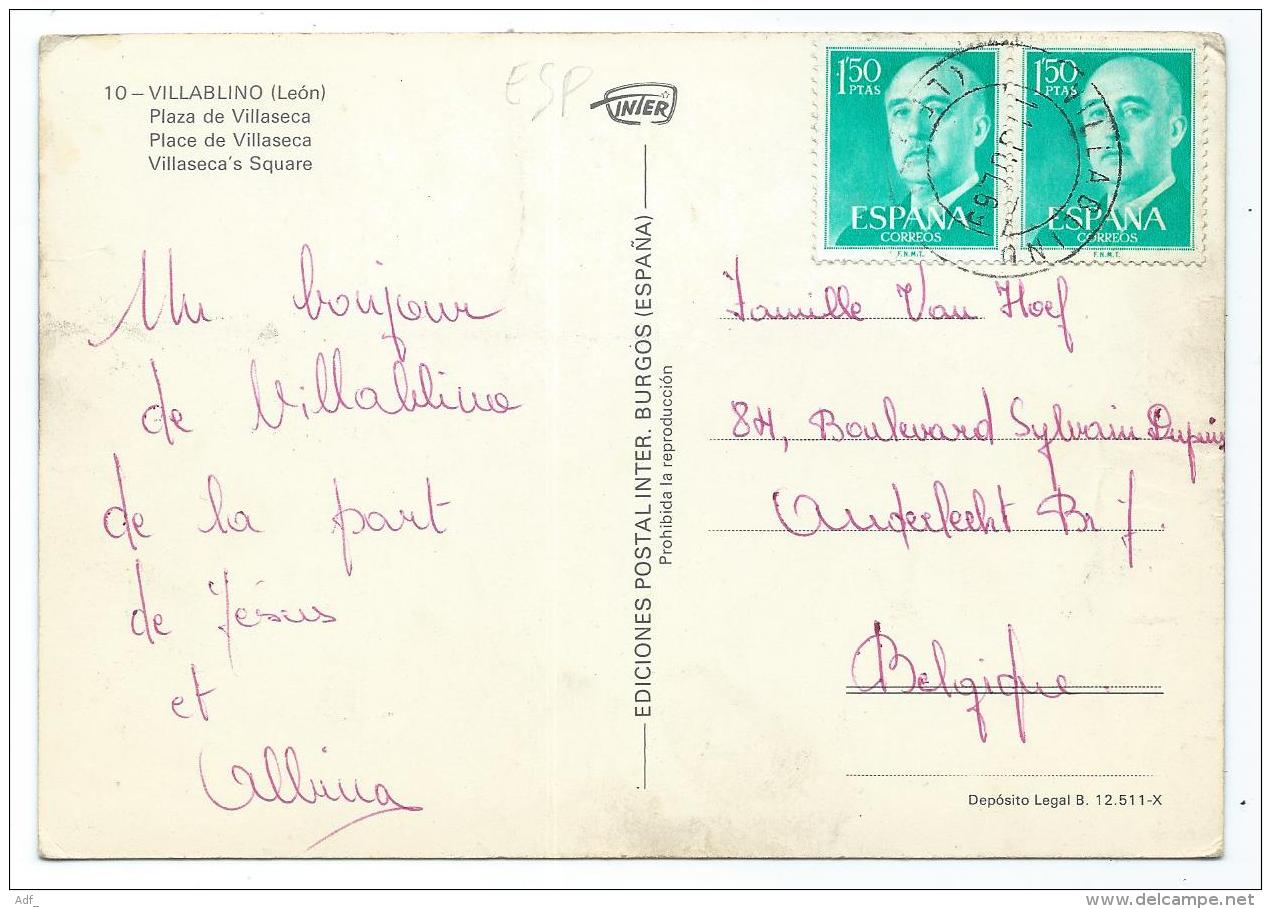 10 – VILLABLINO (León)
Plaza de Villaseca
Place de Villaseca
Villaseca's Square
ESP
INTER
1'50
PTAS
ESPAÑA
CORREOS
F.N.M.T.
1'50
PTAS
ESPAÑA
CORREOS
F.N.M.T.
VILLABLINO
Un bonjour
de Villablino
de la part
de Jésus
et
Albina
EDICIONES POSTAL INTER. BURGOS (ESPAÑA)
Prohibida la reproducción
Famille Van Hoef
84, Boulevard Sylvain Dupuis
Anderlecht Br 7.
Belgique.
Depósito Legal B. 12.511-X
Adf_
delcampe.net